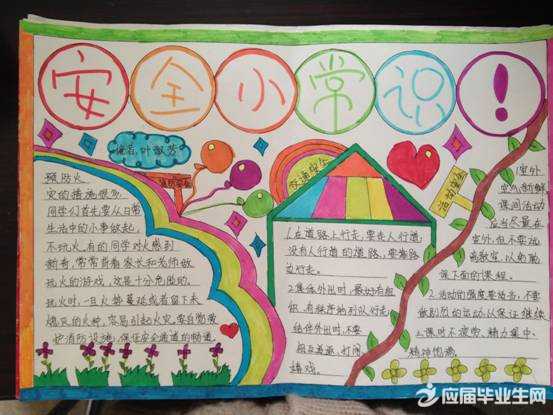 安全小常识!
编者:叶
消防安全
预防火
灾的措施很多,
同学们首先要从日常
生活中的小事做起,
不玩火,有的同学对火感到
新奇,常常背着家长和老师做
玩火的游戏,这是十分危险的。
玩火时,一旦火势蔓延或者留下未
熄灭的火种,容易引起火灾,要自觉爱
护消防设施,保证安全通道的畅通。
交通安全
1.在道路上行走,要走人行道,
没有人行道的道路,要靠路
边行走。
2.集体外出时,最好有组
织、有秩序地列队行走;
结伴外出时,不要
相互追逐、打闹、
嬉戏。
活动安全
1.室外
空气新鲜,
课间活动
应当尽量在
室外,但不要远
离教室,以免耽
误下面的课程。
2.活动的强度要适当,不要
做剧烈的运动,以保证继续
上课时不疲劳、精力集中、
精神饱满。
应届毕业生网